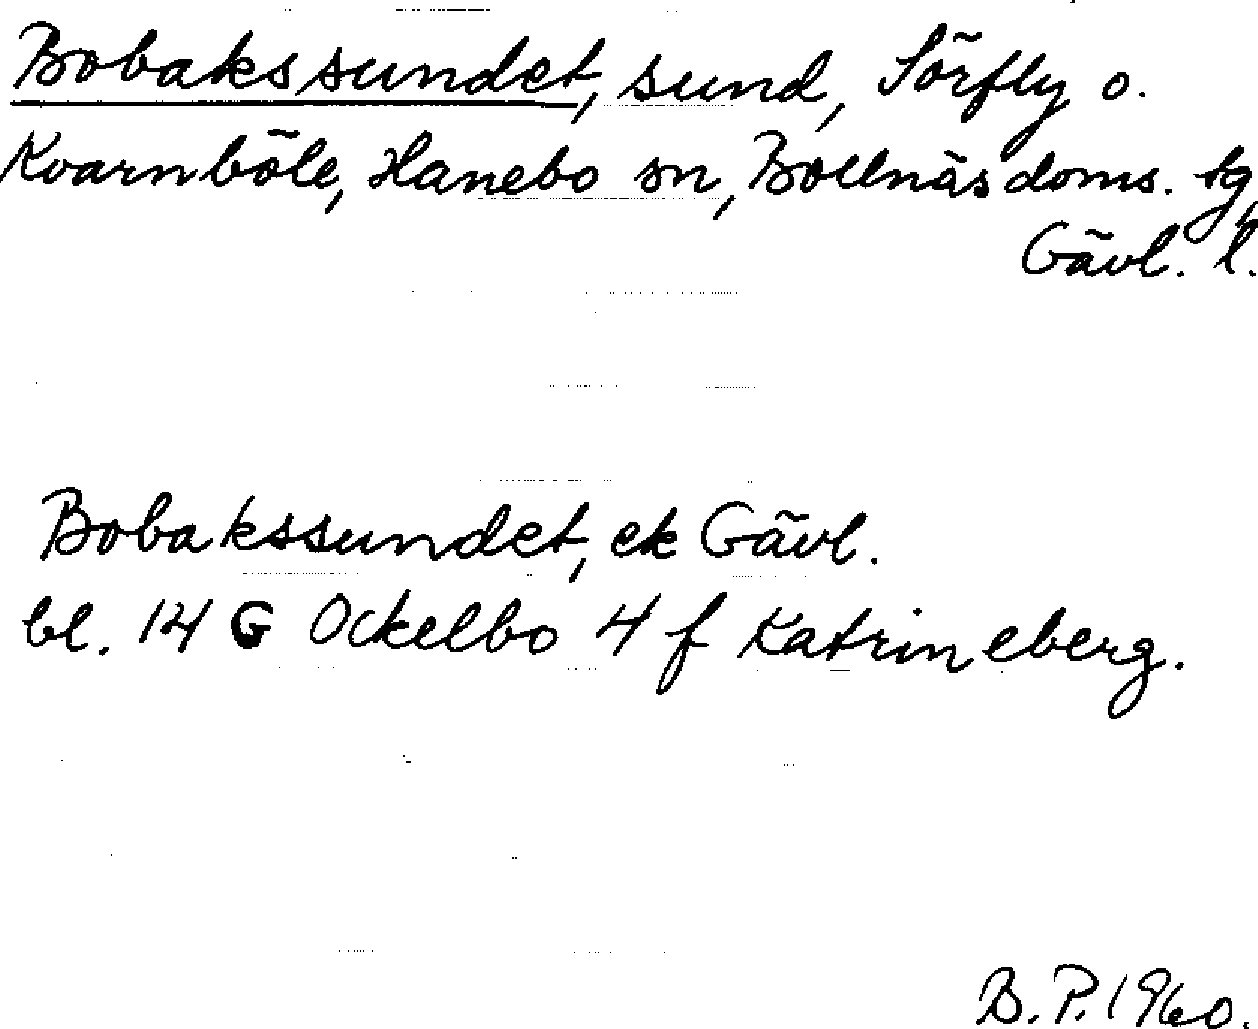 Bobakssundet, sund, Sörfly o.
Kvarnböle, Hanebo sn, Bollnäs doms. tg,
Gävl. l.
Bobakssundet, ek Gävl.
bl. 14 G Ockelbo 4 f Katrineberg.
B. P. 1960.